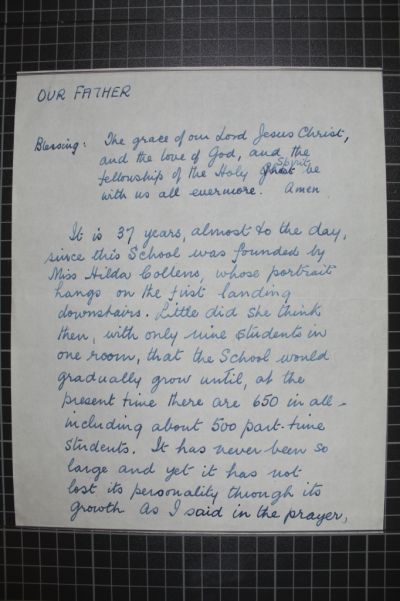 OUR FATHER
Blessing: The grace of our Lord Jesus Christ,
and the love of God, and the
Spirit
fellowship of the Holy Ghost be
with us all evermore. Amen
It is 37 years, almost to the day,
since this School was founded by
Miss Hilda Collens, whose portrait
hangs on the first landing
downstairs. Little did she think
then, with only nine students in
one room, that the School would
gradually grow until, at the
present time there are 650 in all -
including about 500 part-time
students. It has never been so
large and yet it has not
lost its personality through its
growth As I said in the prayer,